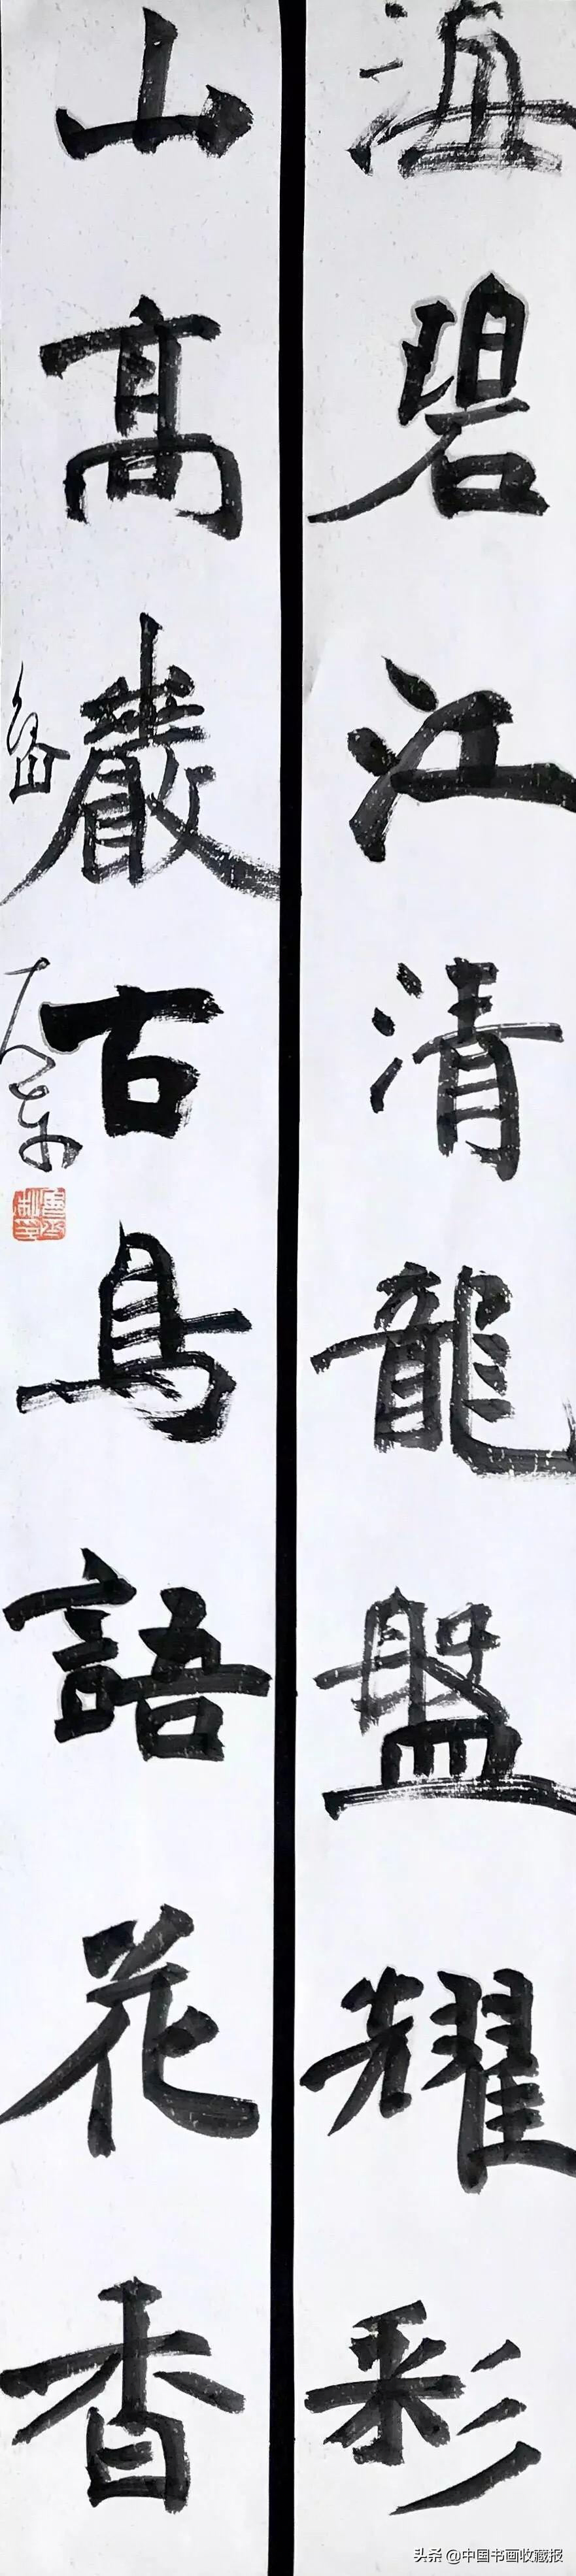 海碧江清龍盤耀彩
山高巖古鳥語花香
头条 @中国书画收藏报